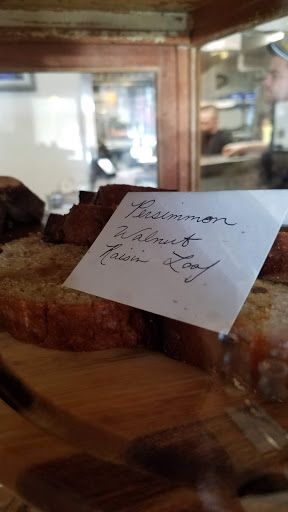 Persimmon
Walnut
Raisin Loaf